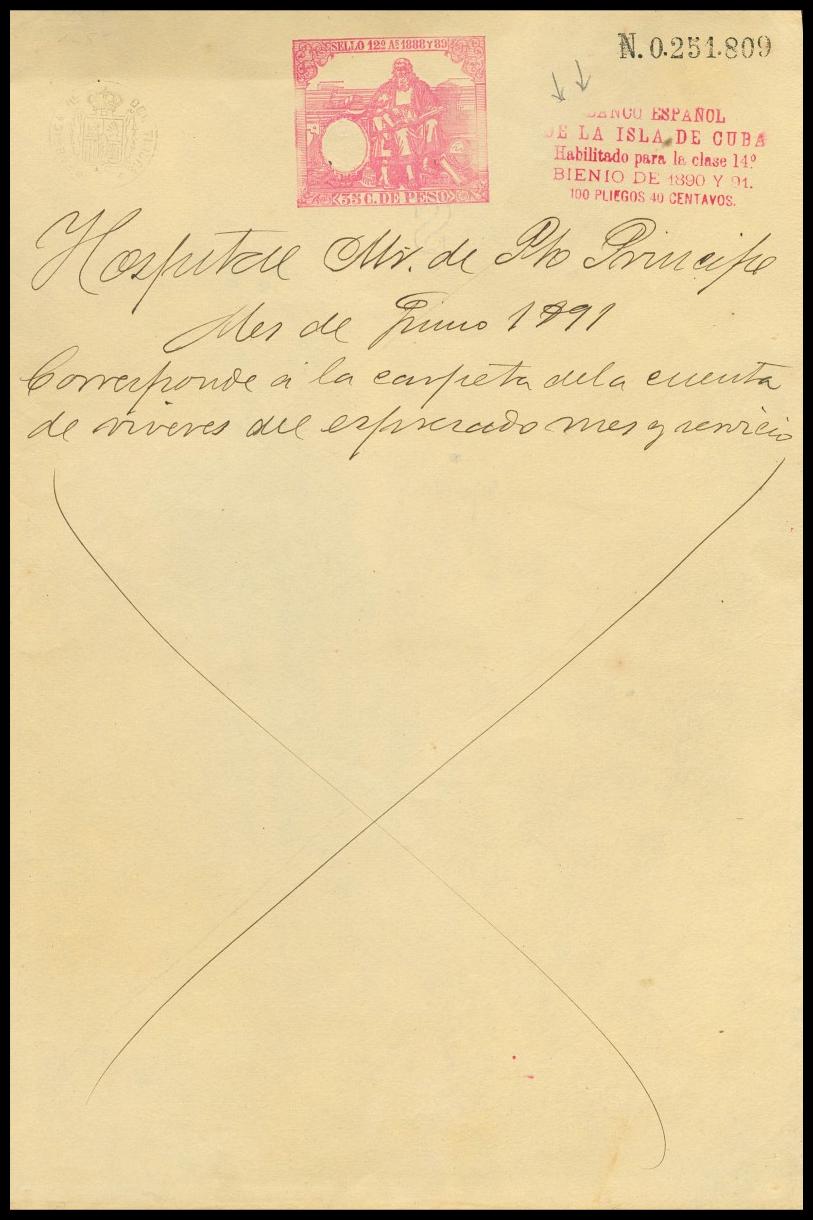 SELLO 12º As 1888 Y 89
35 C. DE PESO
N. 0.251.809
BANCO ESPAÑOL
DE LA ISLA DE CUBA
Habilitado para la clase 14.ª
BIENIO DE 1890 Y 91.
100 PLIEGOS 40 CENTAVOS.
Hospital Mr. de Pto Principe
Mes de Junio 1891
Corresponde á la carpeta dela cuenta
de viveres del espresado mes y servicio